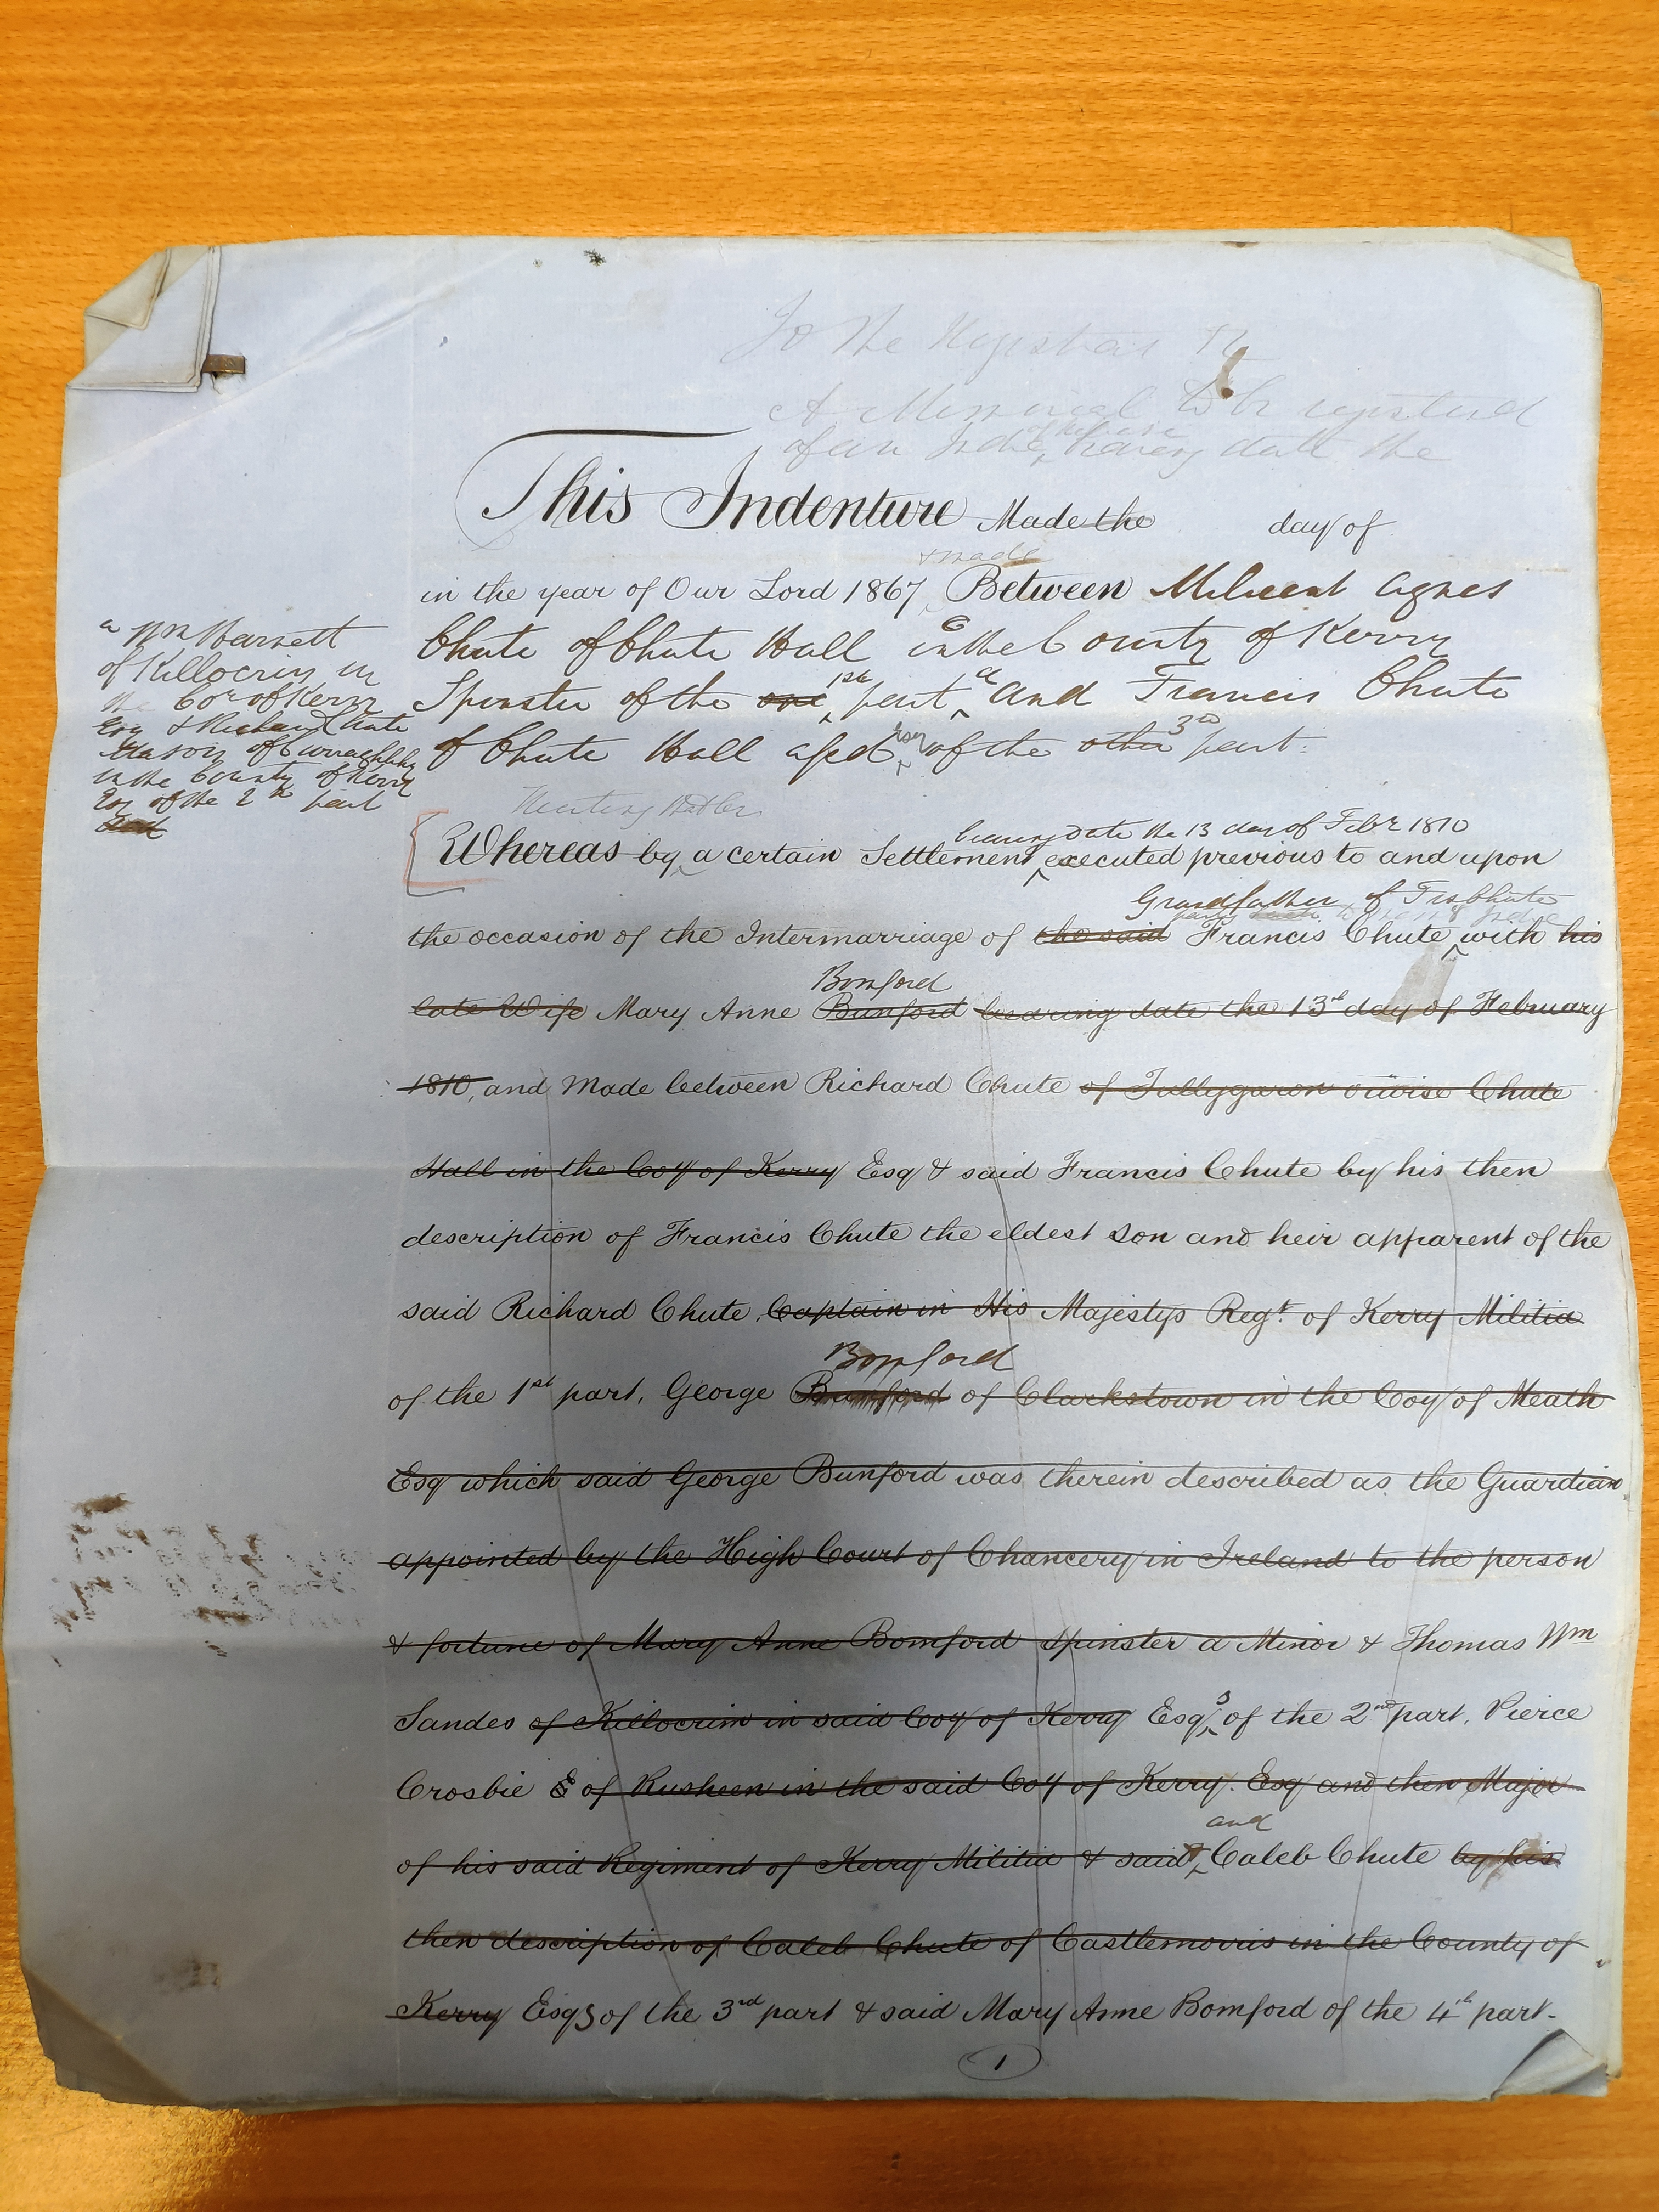 To the Registrar &c
A Memorial to be registered
of an Inde otherwise having date the
This Indenture Made the day of
& made
in the year of Our Lord 1867, Between Milicent Agnes
Chute of Chute Hall in the County of Kerry
Spinster of the one 1st part a and Francis Chute
of Chute Hall afsd Esq of the other 3rd part.
a Wm Harnett
of Killocrim in
the Co of Kerry
Esq & Richard Chute
Mason of
in the County of Kerry
Esq of the 2nd part
and
bearing date the 13 day of Febr 1810
Whereas by a certain Settlement executed previous to and upon
Grandfather of Frs Chute
the occasion of the Intermarriage of the said Francis Chute with his
Bomford
late Wife Mary Anne Bunford bearing date the 13th day of February
1810, and Made between Richard Chute of Tullygaron o'wise Chute
Hall in the Coy of Kerry Esq & said Francis Chute by his then
description of Francis Chute the eldest son and heir apparent of the
said Richard Chute, Captain in His Majestys Regt. of Kerry Militia
Bomford
of the 1st part, George Bunford of Clarkstown in the Coy of Meath
Esq which said George Bunford was therein described as the Guardian
appointed by the High Court of Chancery in Ireland to the person
& fortune of Mary Anne Bomford Spinster a Minor & Thomas Wm
Sandes of Killocrim in said Coy of Kerry Esqs of the 2nd part, Pierce
Crosbie E of Rusheen in the said Coy of Kerry. Esq and then Major
and
of his said Regiment of Kerry Militia & said Caleb Chute by his
then description of Caleb Chute of Castlemorris in the County of
Kerry Esqs of the 3rd part & said Mary Anne Bomford of the 4th part.
1